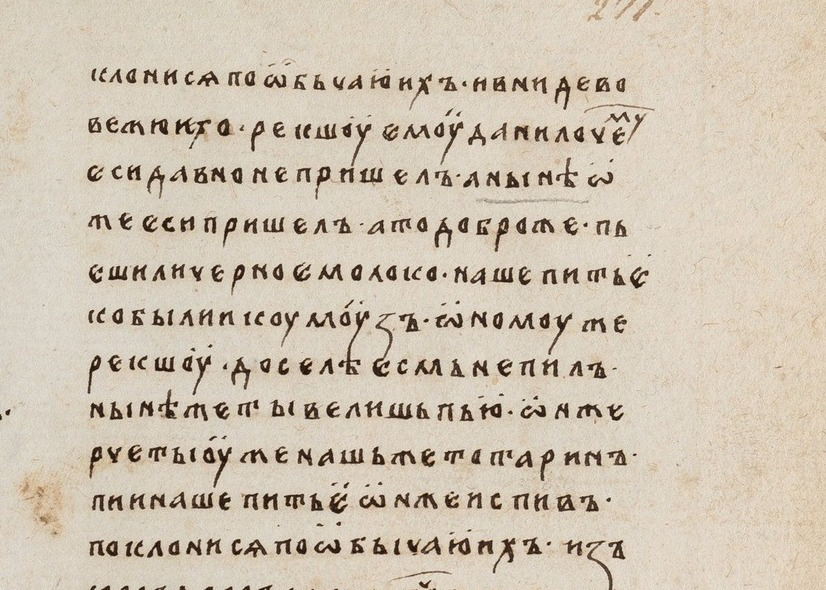 277.
клонисѧ поѡ҅бычаюихъ· ивнидево
вежюиго· рекшоу емоу данилочемꙋ
есидавнонепришелъ· анынѣ ѡ
жеесипришелъ· атодоброже· пь
ешиличерноемолоко· нашепитье
кобылиикоумоузъ· ѡномоу же
рекшоу· доселѣ есмьнепилъ·
нынѣжетывелишьпью· ѡнже
рчетыоуженашьжетотаринъ·
пиинашепитье ѡнжеиспивъ·
поклонисѧ поѡбычаюихъ· изъ